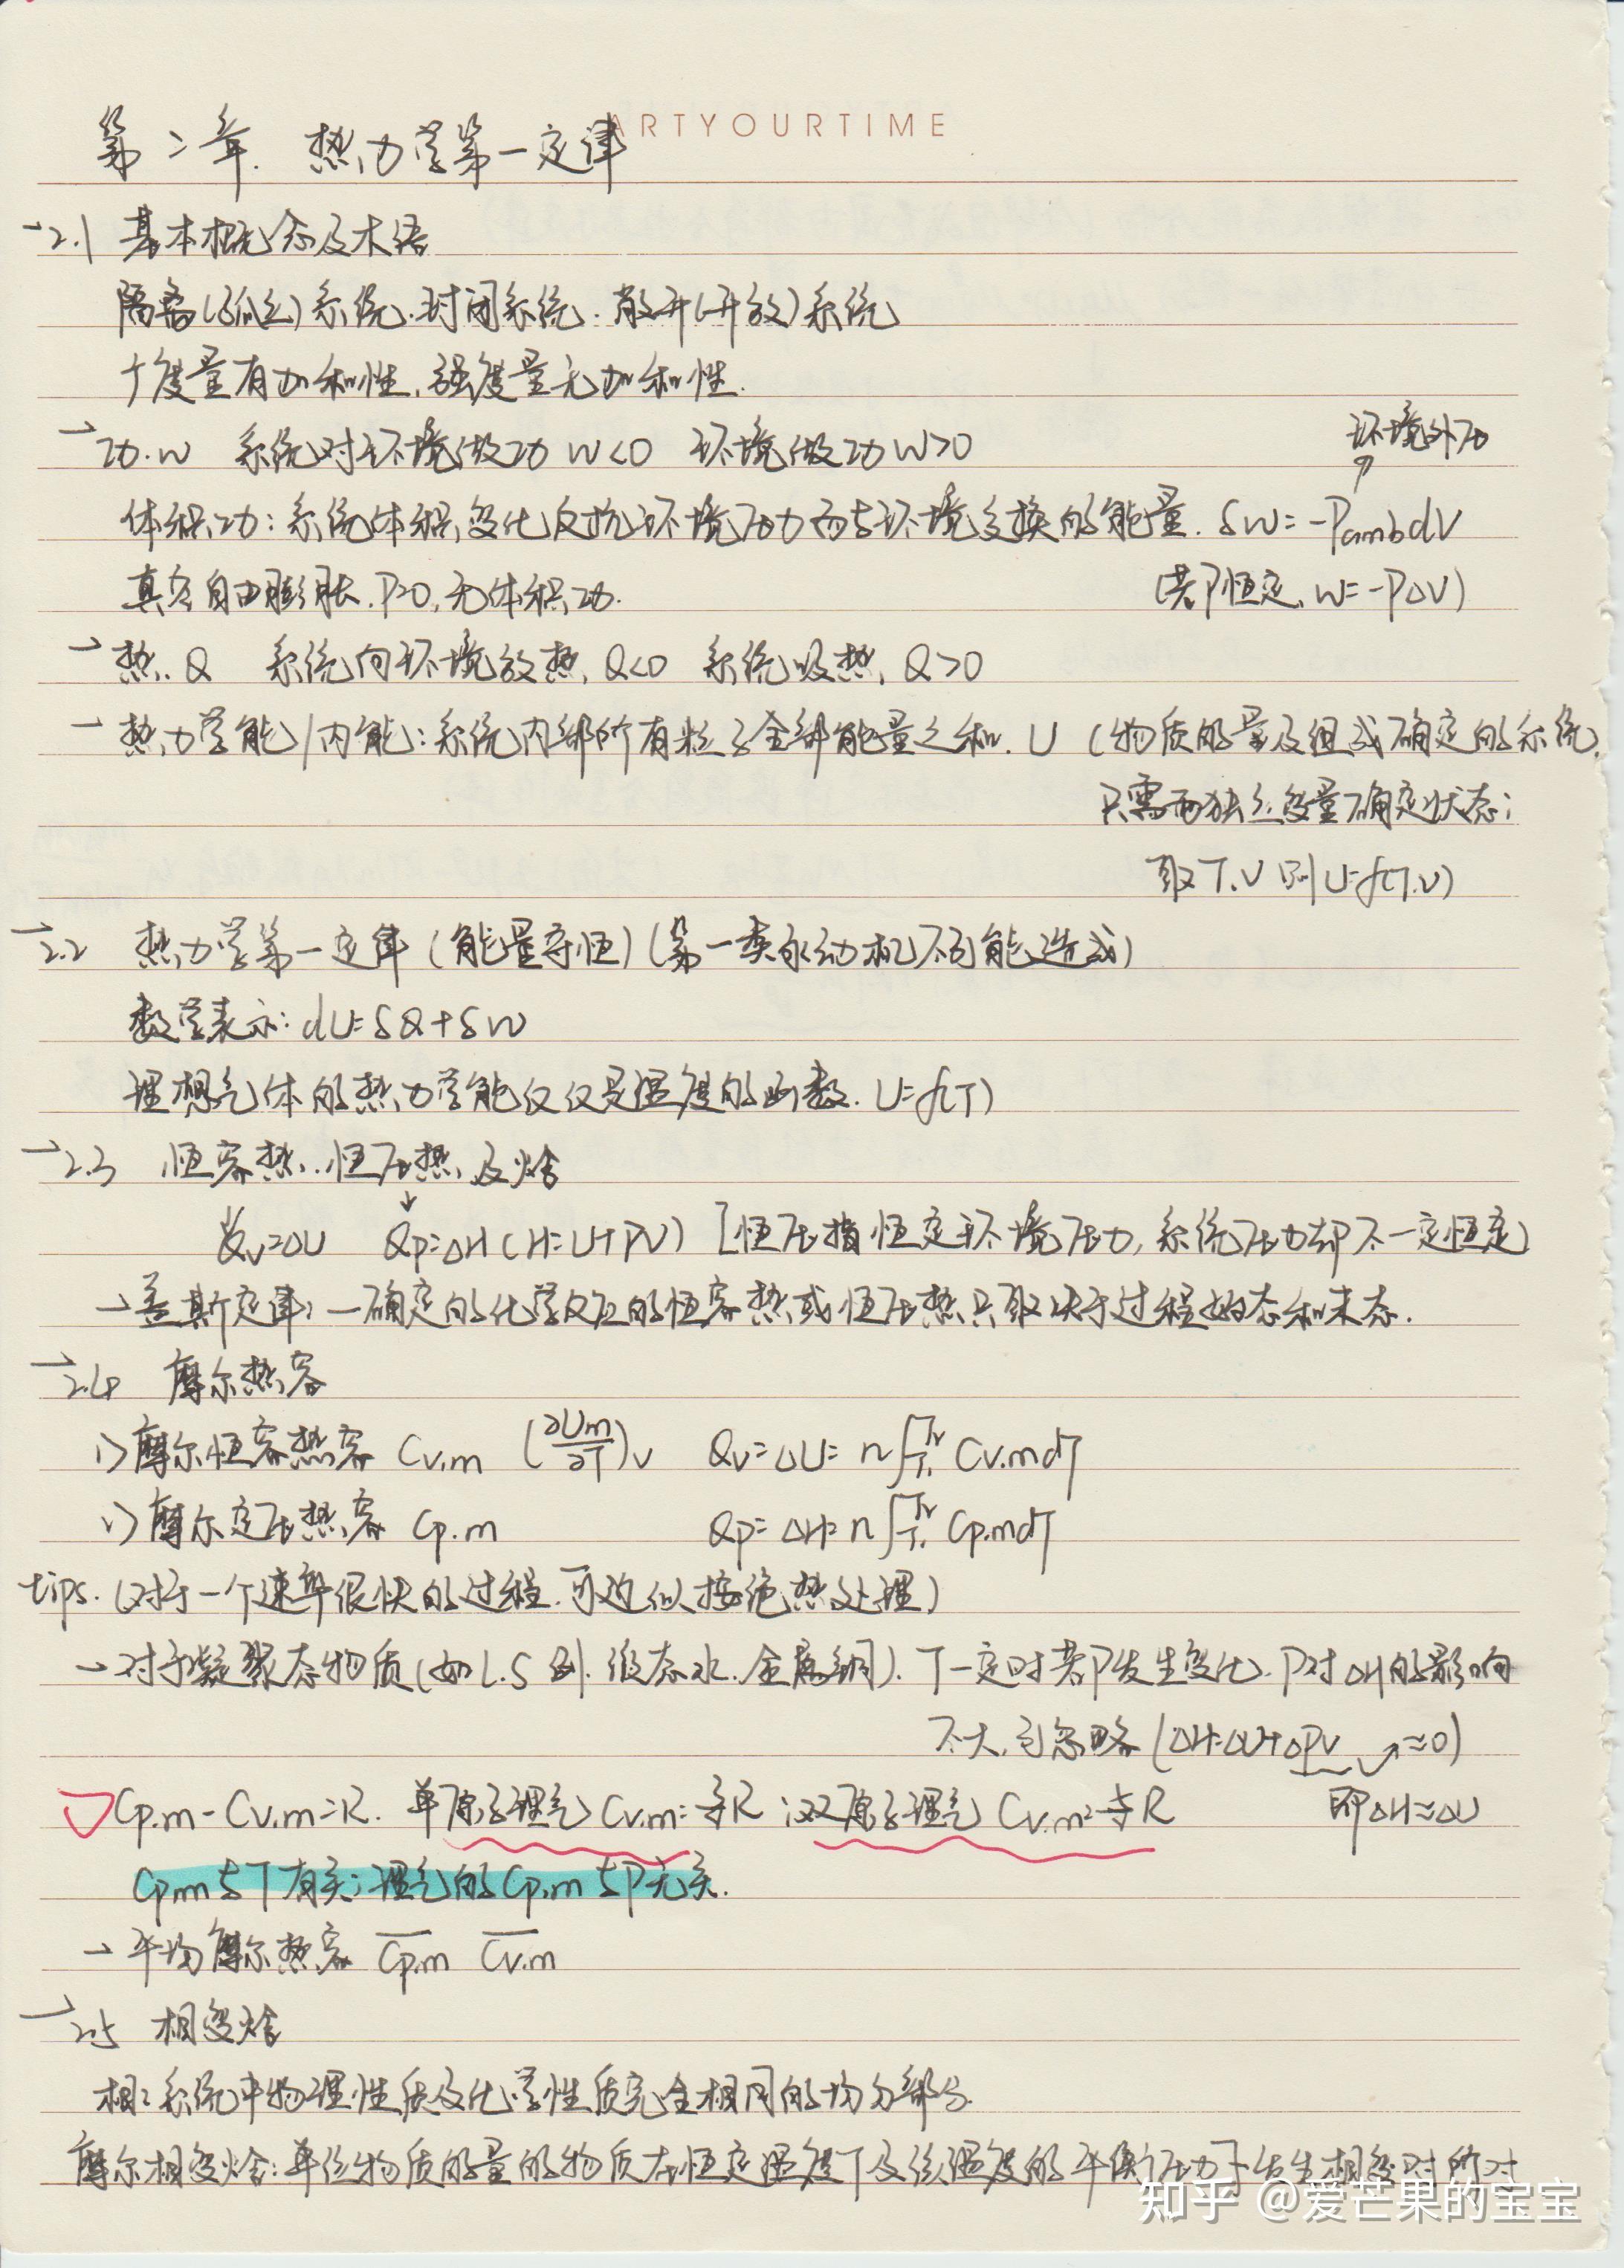 ARTYOURTIME
第二章. 热力学第一定律
2.1 基本概念及术语
隔离(孤立)系统.封闭系统.敞开(开放)系统
广度量有加和性,强度量无加和性.
环境外压
功.W 系统对环境做功 W<0 环境做功 W>0
体积功:系统体积变化反抗环境压力而与环境交换的能量. δW=-PambdV
真空自由膨胀.P=0,无体积功. (若P恒定,W=-PΔV)
热.Q 系统向环境放热,Q<0 系统吸热,Q>0
热力学能/内能:系统内部所有粒子全部能量之和.U (物质的量及组成确定的系统,
只需两独立变量确定状态;
取T.V 则 U=f(T.V)
2.2 热力学第一定律(能量守恒)(第一类永动机不可能造成)
数学表示: dU=δQ+δW
理想气体的热力学能仅仅是温度的函数. U=f(T)
2.3 恒容热.恒压热及焓
Qv=ΔU Qp=ΔH (H=U+PV) [恒压指恒定环境压力,系统压力却不一定恒定]
→盖斯定律:一确定的化学反应的恒容热或恒压热只取决于过程始态和末态.
2.4 摩尔热容
1)摩尔恒容热容 Cv.m (∂Um/∂T)v Qv=ΔU=n∫T1T2 Cv.mdT
2)摩尔定压热容 Cp.m Qp=ΔH=n∫T1T2 Cp.mdT
tips.(对于一个速率很快的过程.可近似按绝热处理)
→对于凝聚态物质(如l.s 例.液态水.金属铜).T一定时若P发生变化.P对ΔH的影响
不大,可忽略(ΔH=ΔU+ΔPV ≈0)
Cp.m-Cv.m=R. 单原子理气 Cv.m=3/2R ;双原子理气 Cv.m=5/2R 即ΔH≈ΔU
Cp.m与T有关;理气的Cp.m与P无关.
→平均摩尔热容 Cp.m Cv.m
2.5 相变焓
相:系统中物理性质及化学性质完全相同的均匀部分.
摩尔相变焓:单位物质的量的物质在恒定温度T及该温度的平衡压力下发生相变时所对
知乎 @爱芒果的宝宝